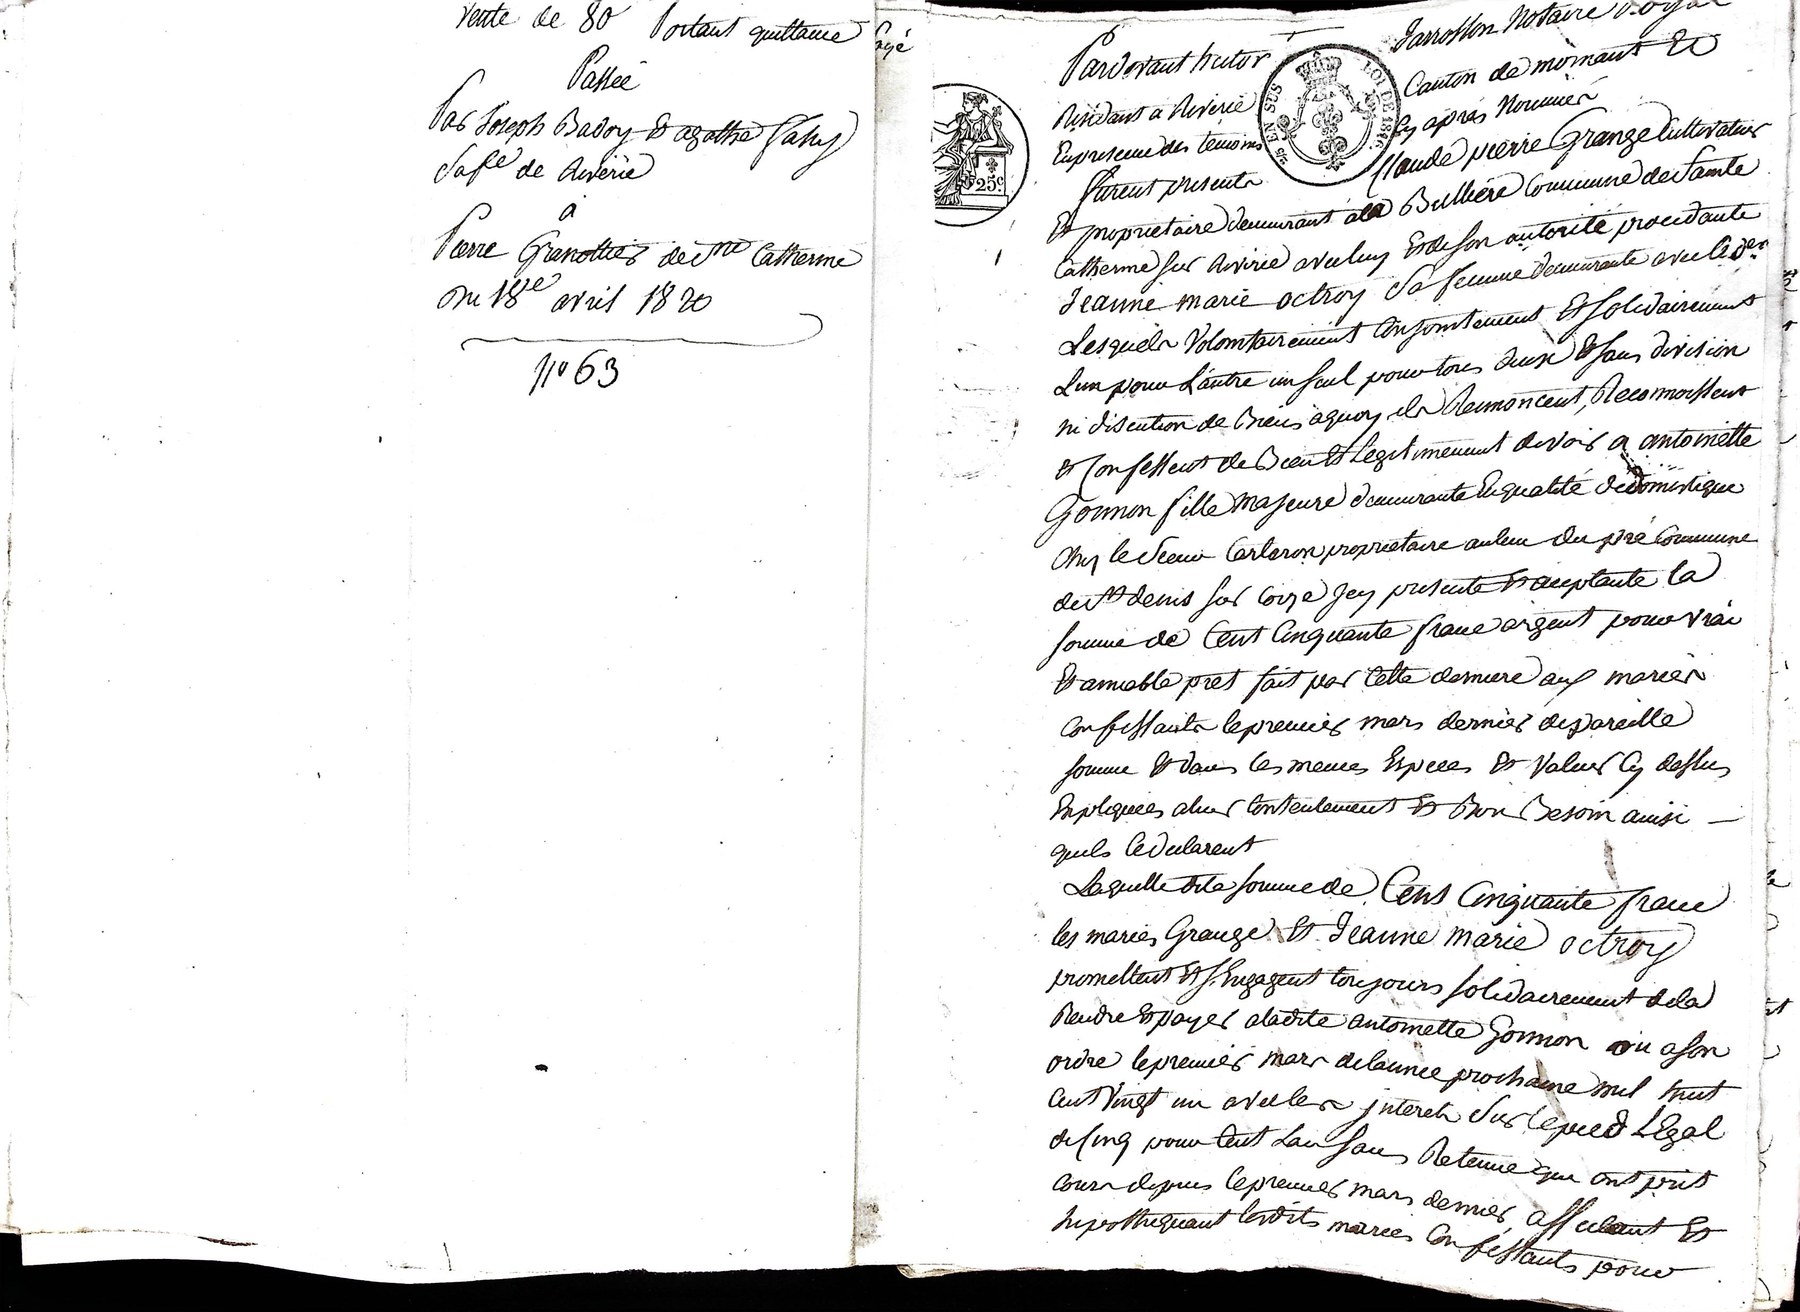 Vente de 80 Portant quittance
Passée
Par Joseph Badoy et agathe
Sa fe de Riverie
a
Pierre Granottier de Ste Catherine
Du 18e avril 1820
no 63
Pardevant hector Jarrosson Notaire Royal
Residant a Riverie Canton de mornant Et
En presence des temoins Cy après Nommés
furent presents Claude pierre Grange Cultivateur
Et proprietaire demeurant ala Bulliere Commune de Sainte
Catherine sur Riverie avec luy Et de son autorité procedante
Jeanne marie octroy Sa femme demeurante avec led.
Lesquels Volontairement Conjointement Et solidairement
L'un pour L'autre un seul pour tous deux Et sans division
ni discution de Biens aquoy ils Renoncent, Reconnoissent
et Confessent de Bien Et Legitimement devoir a antoinette
Gonnon fille majeure demeurante En qualité de domestique
Chez le Sieur proprietaire au lieu du pré Commune
de St denis sur Coize Jcy presente Et acceptante la
somme de Cent Cinquante franc argent pour vrai
Et amiable pret fait par Cette derniere aux mariés
Confessants le premier mars dernier de pareille
somme Et dans les memes Especes Et Valeur Cy dessus
Expliquées aleur Contentement Et Bon Besoin ainsi
quils le declarent
Laquelle dite somme de Cent Cinquante franc
les mariés Grange Et Jeanne marie octroy
promettent Et s'Engagent toujours solidairement dela
Rendre Et payer aladite antoinette Gonnon ou a son
ordre le premier mars delannée prochaine mil huit
Cent Vingt un avec les jnterets sur le pied Légal
de Cinq pour Cent L'an sans Retenue qui ont prit
cours depuis le premier mars dernier, affectant Et
hypothequant lesdits mariés Confessants pour
25 EN SUS
LOI DE 1816
25c